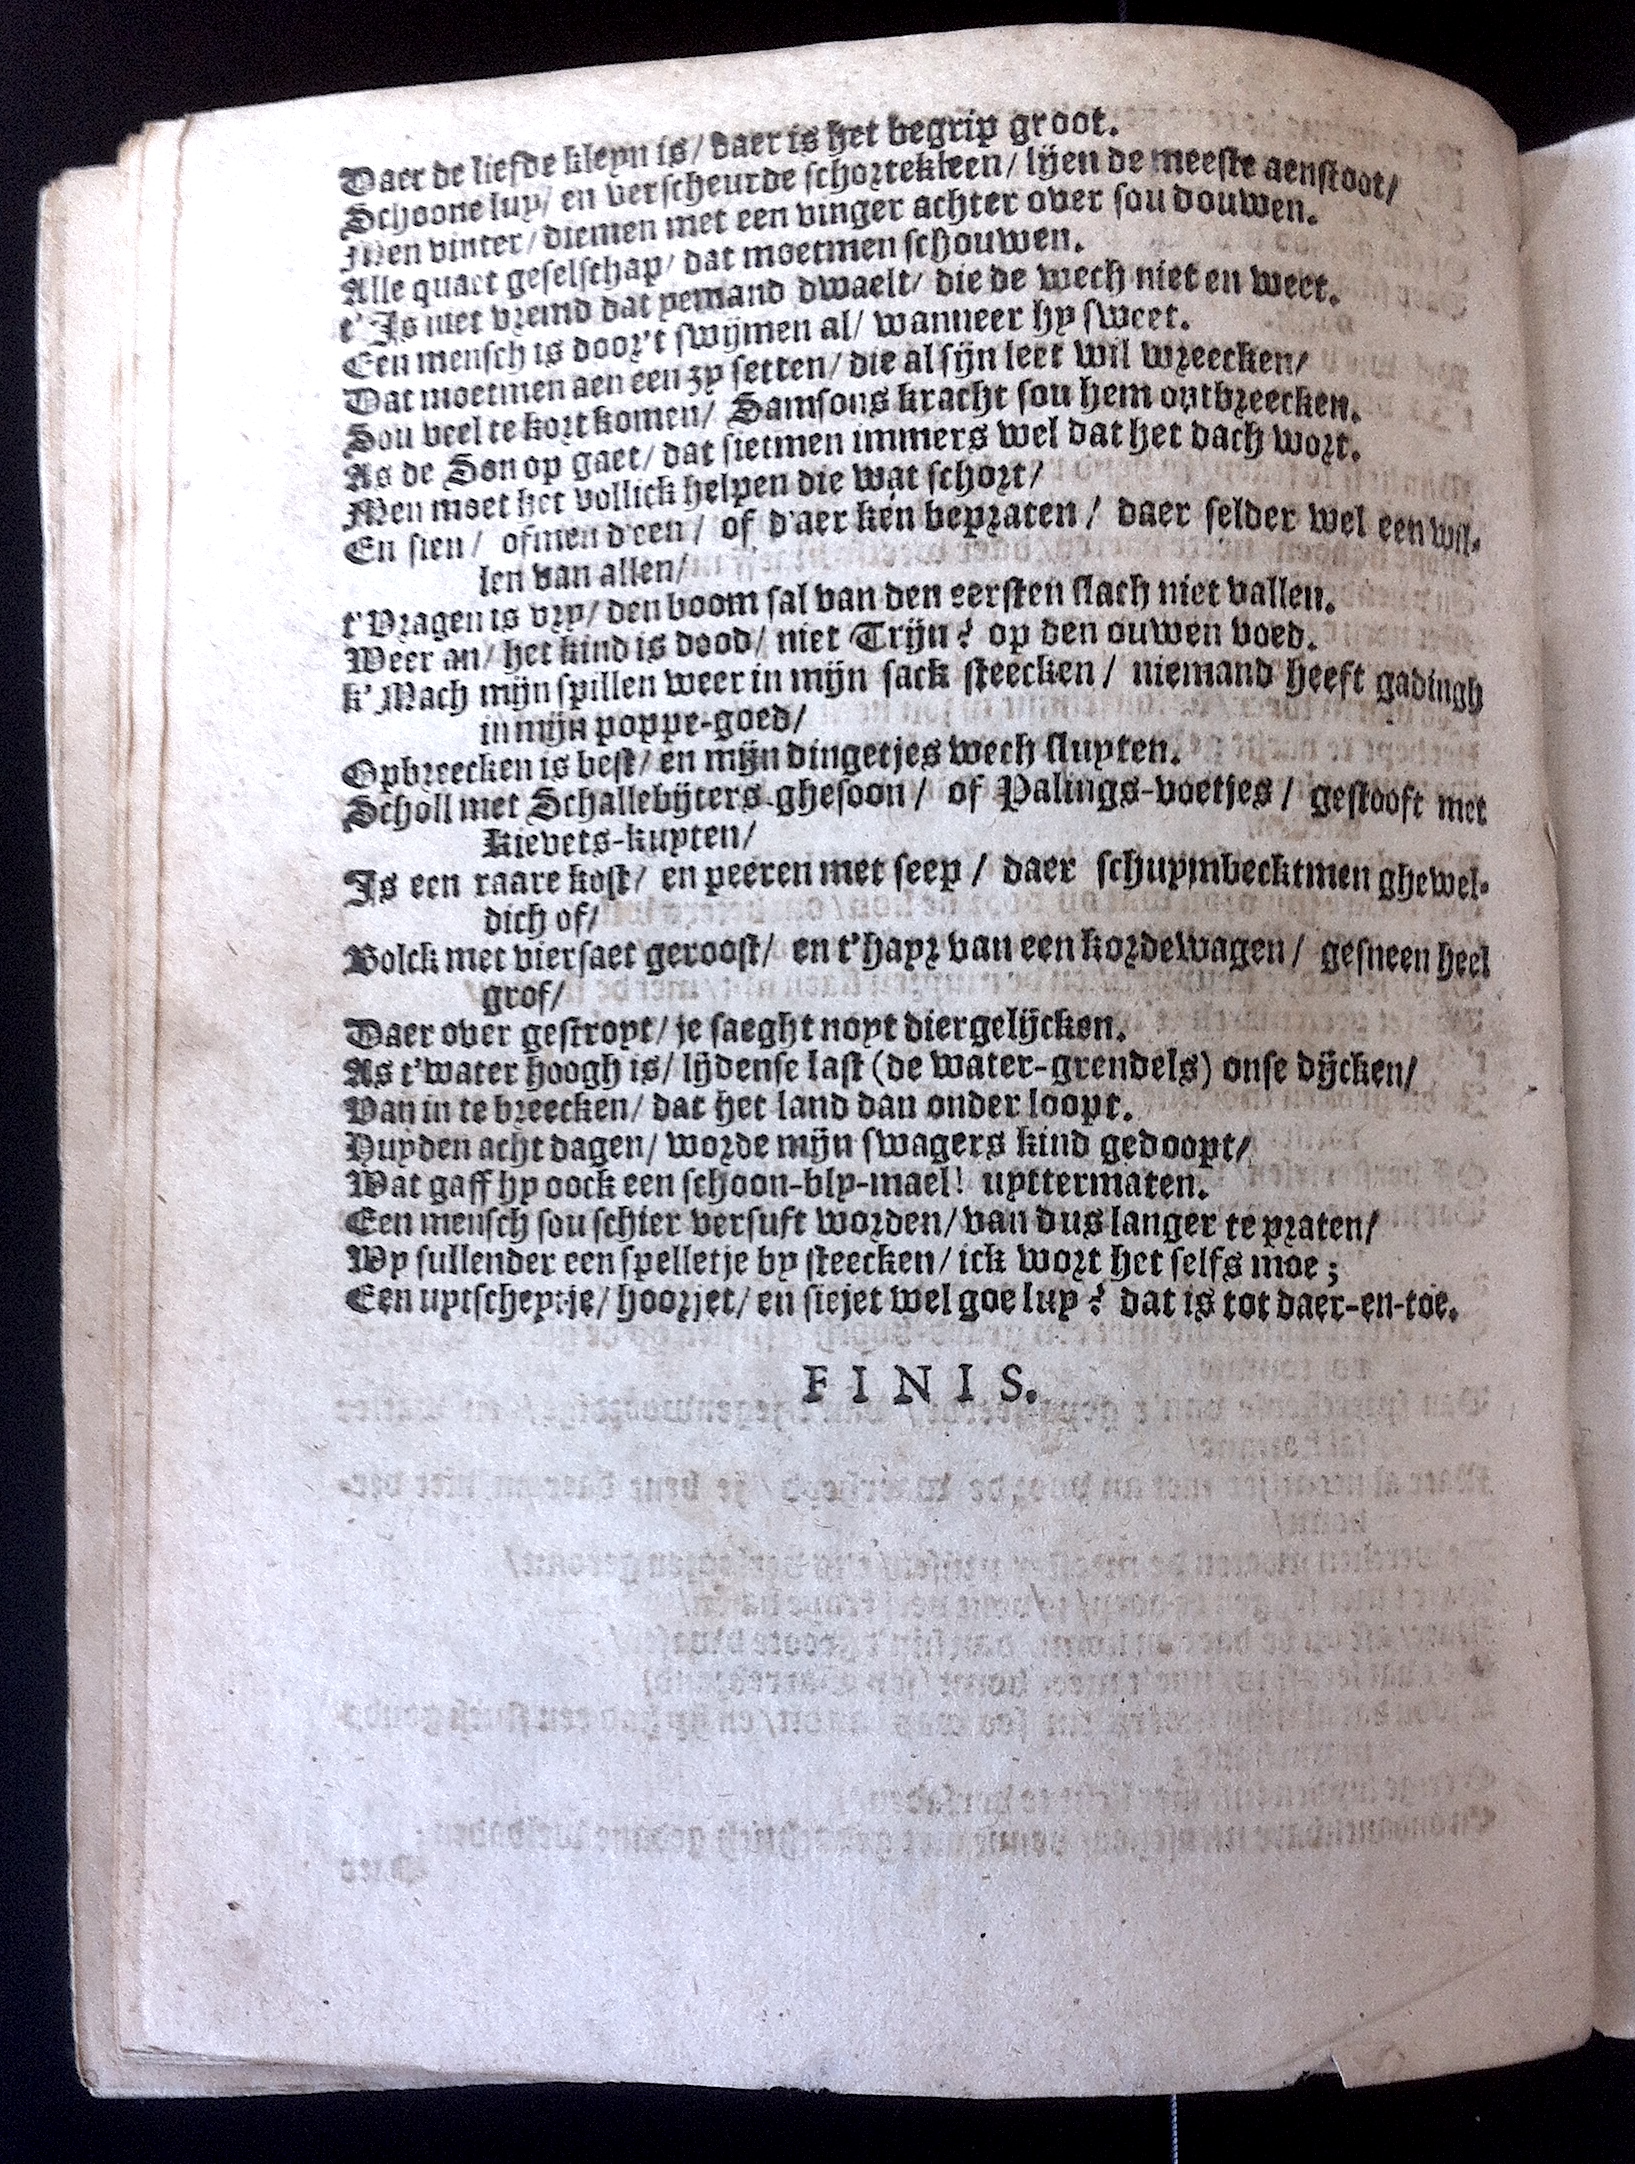 Daer de liefde kleyn is/ daer is het begrip groot.
Schoone luy/ en verscheurde schortekleen/ lijen de meeste aenstoot/
Men vinter/ diemen met een vinger achter over sou douwen.
Alle quaet geselschap/ dat moetmen schouwen.
t'Is niet vremd dat yemand dwaelt/ die de wech niet en weet.
Een mensch is door't swijmen al/ wanneer hy sweet.
Dat moetmen aen een zy setten/ die al sijn leet wil wreecken/
Sou veel te kort komen/ Samsons kracht sou hem ontbreecken.
As de Son op gaet/ dat sietmen immers wel dat het dach wort.
Men moet het vollick helpen die wat schort/
En sien/ ofmen d'een/ of d'aer ken bepraten/ daer selder wel een wil-
len van allen/
t'Vragen is vry/ den boom sal van den eersten slach niet vallen.
Weer an/ het kind is dood/ niet Trijn? op den ouwen voed.
k'Mach mijn spillen weer in mijn sack steecken/ niemand heeft gadingh
in mijn poppe-goed/
Opbreecken is best/ en mijn dingetjes wech sluyten.
Scholl met Schallebijters ghesoon/ of Palings-voetjes/ gestooft met
kievets-kuyten/
Is een raare kost/ en peeren met seep/ daer schuymbecktmen ghewel-
dich of/
Bolck met viersaet geroost/ en t'hayr van een kordewagen/ gesneen heel
grof/
Daer over gestroyt/ je saeght noyt diergelijcken.
As t'water hoogh is/ lijdense last (de water-grendels) onse dijcken/
Van in te breecken/ dat het land dan onder loopt.
Huyden acht dagen/ worde mijn swagers kind gedoopt/
Wat gaff hy oock een schoon-bly-mael! uyttermaten.
Een mensch sou schier versuft worden/ van dus langer te praten/
Wy sullender een spelletje by steecken/ ick wort het selfs moe;
Een uytscheytje/ hoorjet/ en siejet wel goe luy? dat is tot daer-en-toe.
FINIS.